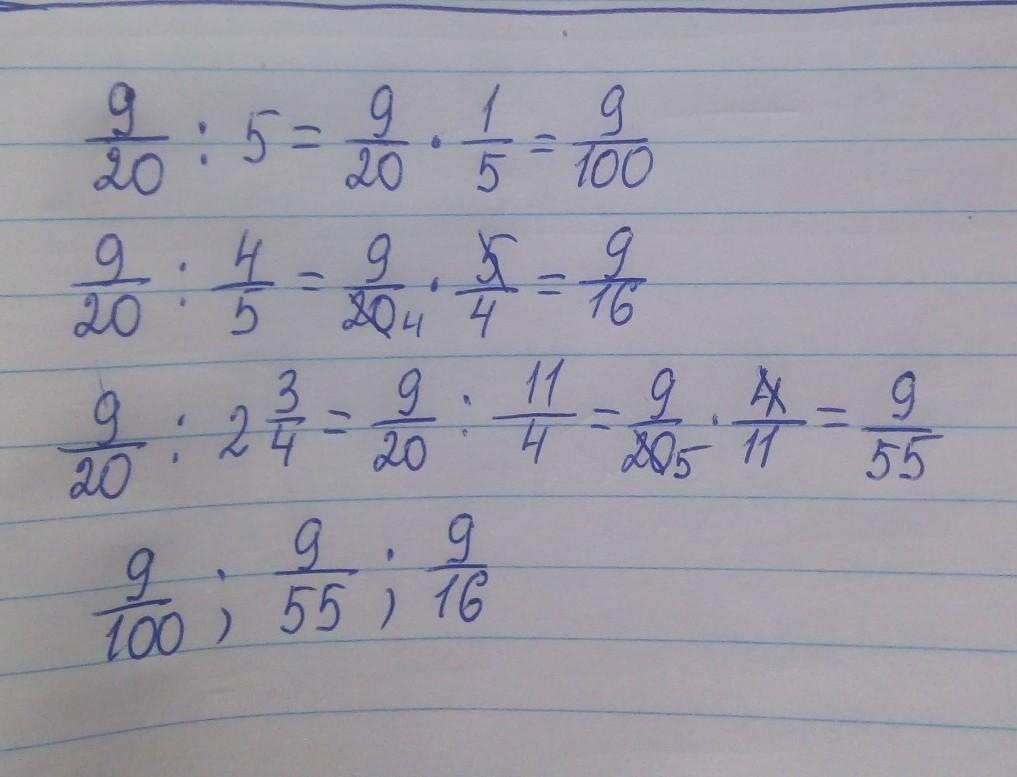 9/20 : 5 = 9/20 · 1/5 = 9/100
9/20 : 4/5 = 9/20 4 · 5/4 = 9/16
9/20 : 2 3/4 = 9/20 : 11/4 = 9/20 5 · 4/11 = 9/55
9/100 ; 9/55 ; 9/16